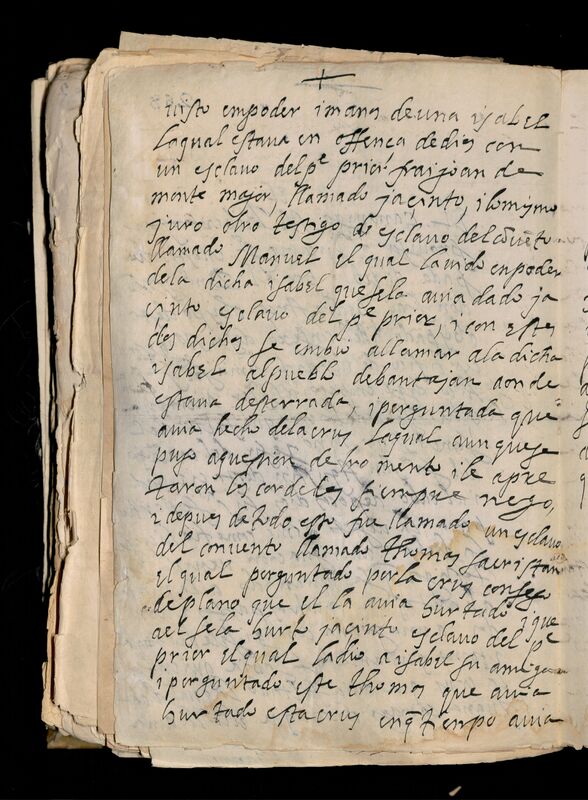 uisto empoder i manos de una isabel
laqual estaua en offença de dios con
un esclauo del pe prior frai joan de
monte major, llamado jaçinto, i lo mismo
juro otro testigo esclauo del conuēto
llamado Manuel el qual la uido en poder
de la dicha isabel que se la auia dado ja
cinto esclauo del pe prior, i con estos
dos dichos se embio allamar ala dicha
isabel alpueblo debantajan aonde
estaua desterrada, i perguntada que
auia hecho dela crus laqual aunquese
puso aquestion de tromento i le apre
taron los cordeles siempre nego,
i depues de todo esto fue llamado un esclauo
del conuento llamado thomas sacristan
el qual perguntado por la crus confeso
de plano que el la auia hurtado i que
ael se la hurto jacinto esclauo del pe
prior el qual la dio a isabel su amiga
i perguntado este thomas que auia
hurtado esta crus en q̃ tienpo auia